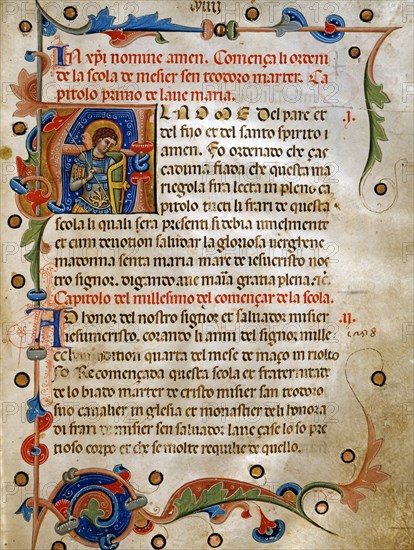 viiii
In xp̄i nomine amen. Comença li ordeni
de la scola de mesier sen teodoro marter. Ca
pitolo primo de l ave maria.
AL NOME Del pare et .I.
del fijo et del santo spirito i
amen. Fo ordenado che ças
caduna fiada che questa ma
riegola fira lecta in pleno ca
pitolo tucti li frari de questa
scola li quali sera presenti si debia umelmente
et cum devotion saludar la gloriosa verghene
madonna senta maria mare de iesu cristo nos
tro signor. digando ave maria gratia plena.
Capitolo del millesimo del començar de la scola.
AD honor del nostro signior et salvador misier .II.
iesu cristo. corando li anni del signor mille 1258
quarta del mese de março in rivolto
se. Recomençada questa scola et fraternitade
de lo biado marter de cristo misier san teodoro
suo cavalier in glesia et monastier de li honora
di frari de misier sen salvador la nc̄ aṣe lo so pre
tioso corpo et che se molte requilie de quello.